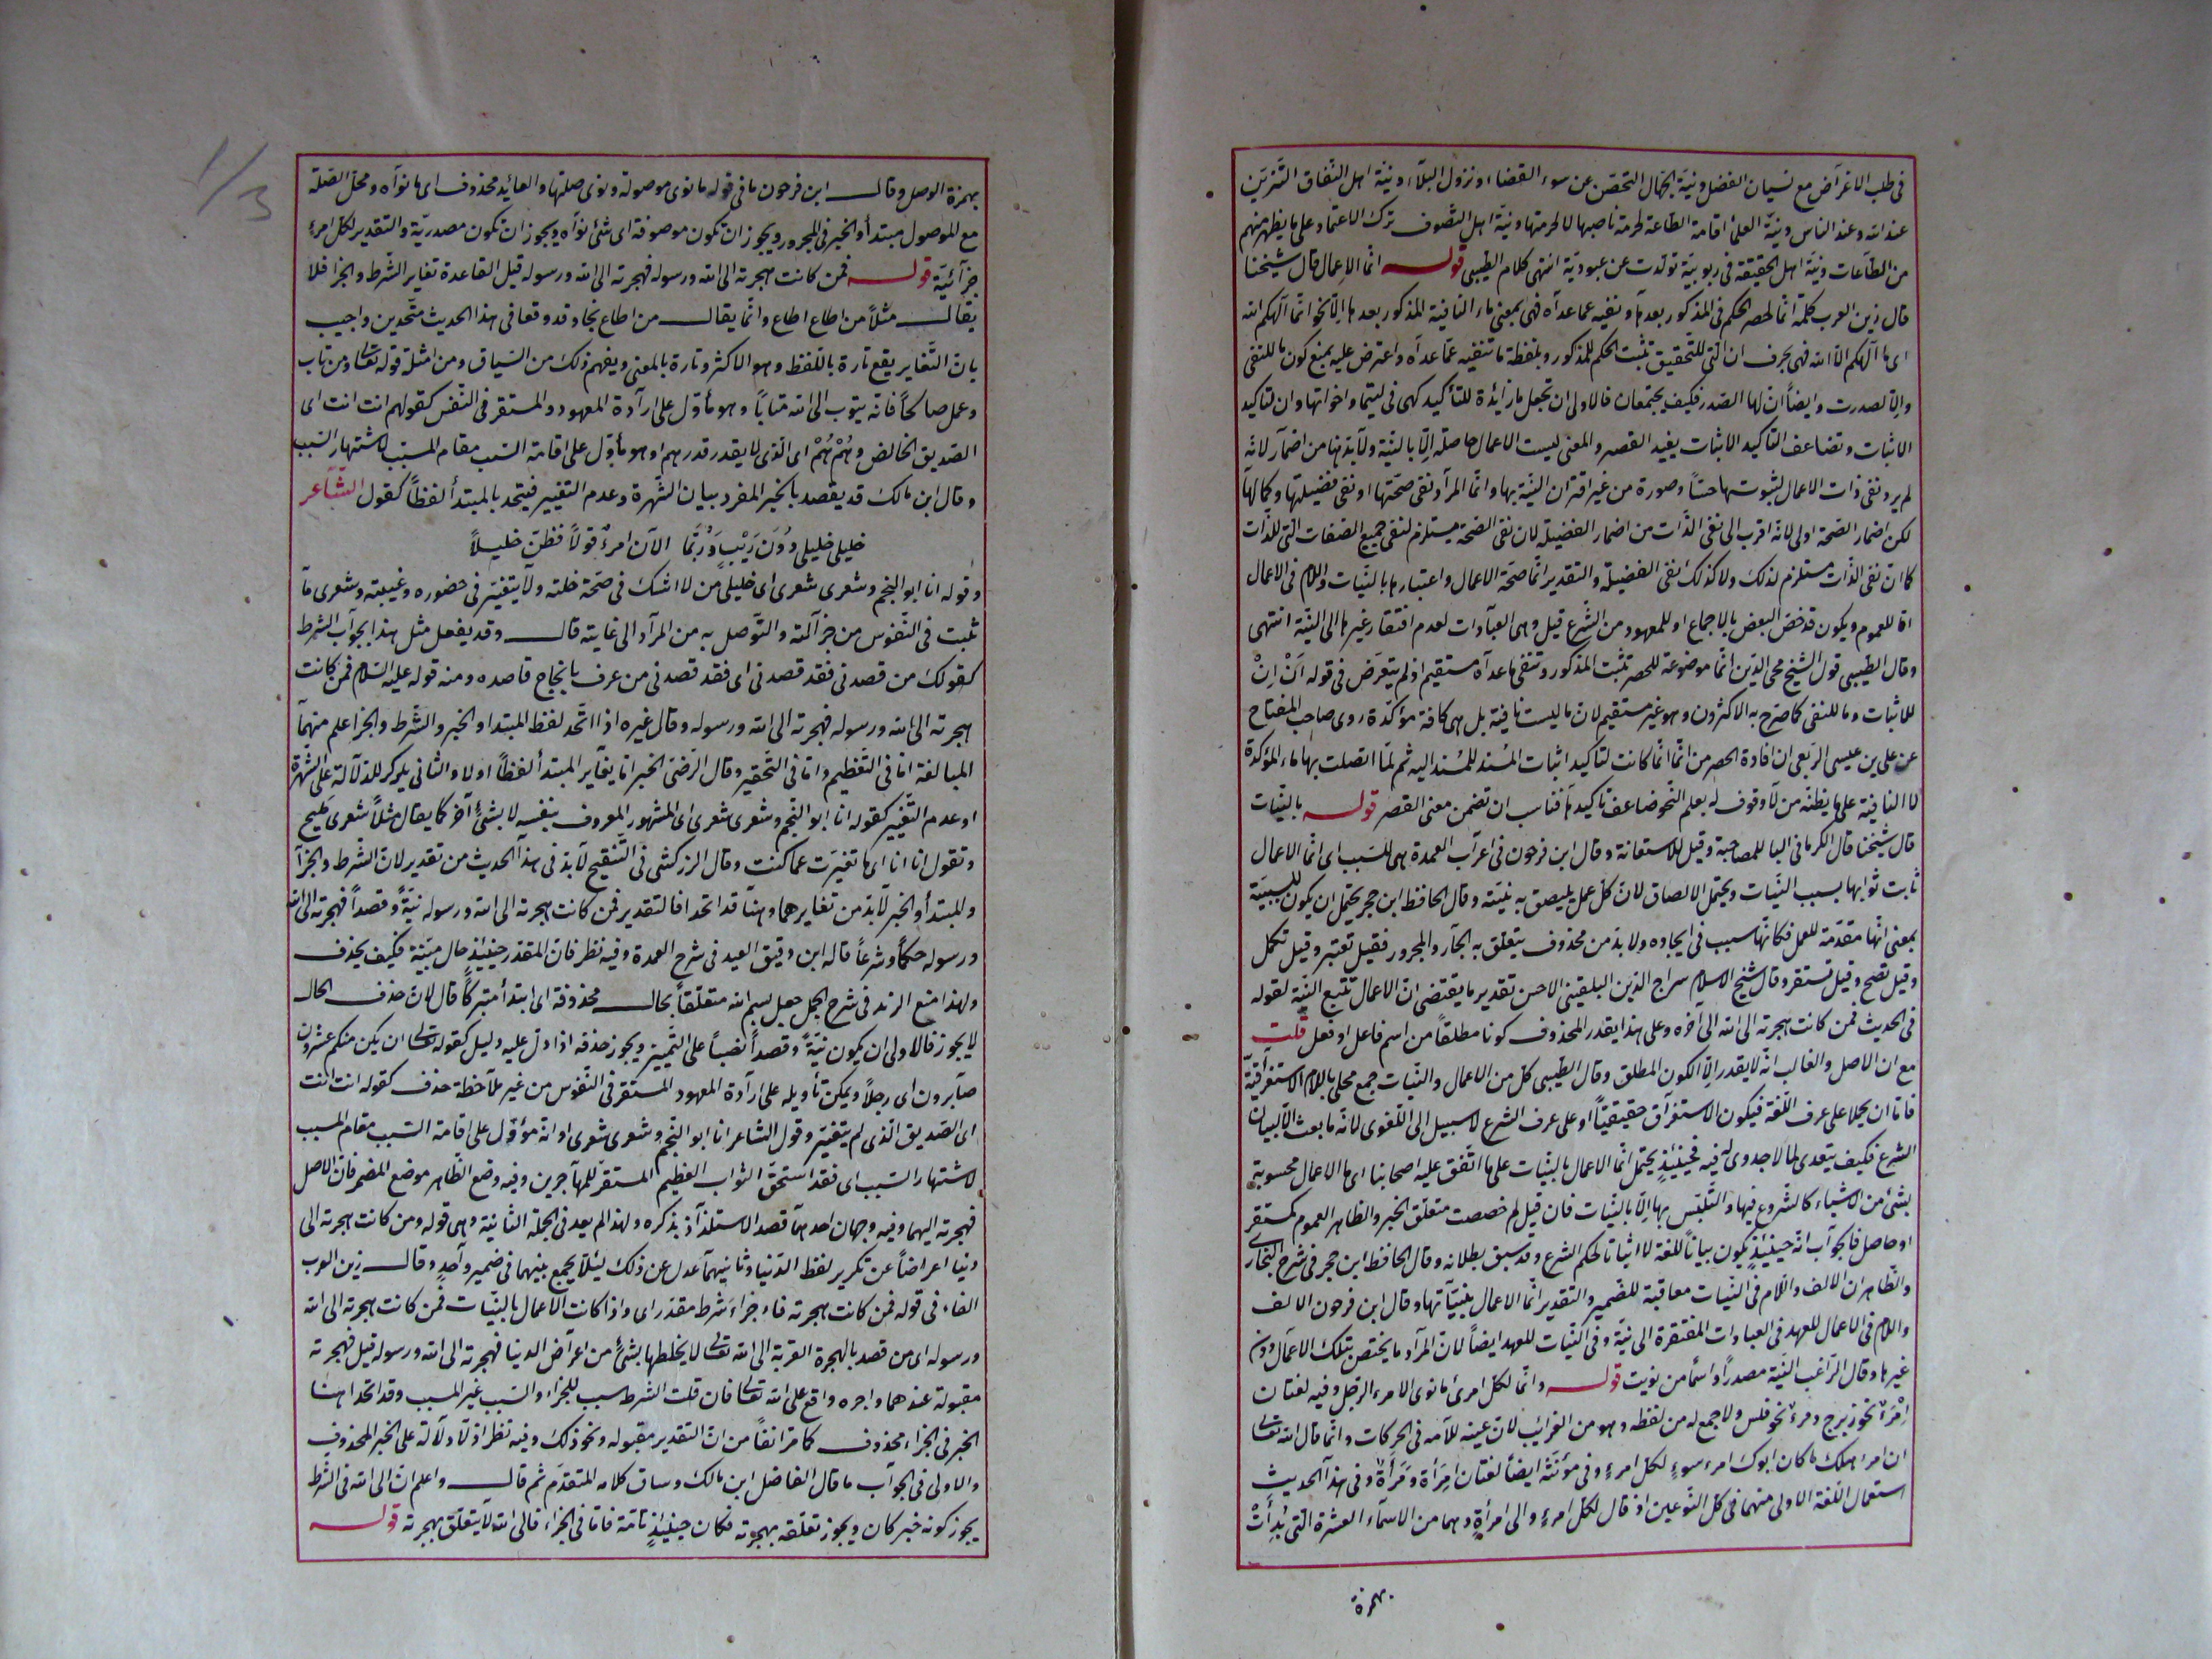 فى طلب الاغراض مع نسيان الفضل ونية الجهال التحصن عن سوء القضاء ونزول البلاء ونية اهل النفاق التزين
عند الله وعند الناس ونية العلماء اقامة الطاعة لحرمة ناصبها لا لحرمتها ونية اهل التصوف ترك الاعتماد على ما يظهر منهم
من الطاعات ونية اهل الحقيقة فى ربوبية تولدت عن عبودية انتهى كلام الطيبى قوله انما الاعمال قال شيخنا
قال زين العرب كلمة انما لحصر الحكم فى المذكور بعدها ونفيه عما عداه فهى بمعنى ما النافية المذكور بعدها الا نحو انما الهكم الله
اى ما الهكم الا الله فهى بحرف ان التى للتحقيق تثبت الحكم للمذكور وبلفظة ما تنفيه عما عداه واعترض عليه بمنع كون ما للنفى
والا لصدرت وايضاً ان لها الصدر فكيف يجتمعان فالاولى ان تجعل ما زائدة للتأكيد كهى فى ليتما واخواتها وان لتاكيد
الاثبات وتضاعف التاكيد الاثبات يفيد القصر والمعنى ليست الاعمال حاصلة الا بالنية ولا بد هنا من اضمار لانه
لم يرد نفى ذات الاعمال لثبوتها حساً وصورة من غير اقتران النية بها وانما المراد نفى صحتها او نفى فضيلتها وكمالها
لكن اضمار الصحة اولى لانه اقرب الى نفى الذات من اضمار الفضيلة لان نفى الصحة مستلزم لنفى جميع الصفات التى للذات
كما ان نفى الذات مستلزم لذلك ولا كذلك نفى الفضيلة والتقدير انما صحة الاعمال واعتبارها بالنيات واللام فى الاعمال
اما للعموم ويكون قد خص البعض بالاجماع او للمعهود من الشرع قيل وهى العبادات لعدم افتقار غيرها الى النية انتهى
وقال الطيبى قول الشيخ محى الدين انما موضوعة للحصر تثبت المذكور وتنفى ما عداه مستقيم اذ لم يتعرض فى قوله ان ان
للاثبات وما للنفى كما صرح به الاكثرون وهو غير مستقيم لان ما ليست نافية بل هى كافة مؤكدة روى صاحب المفتاح
عن على بن عيسى الربعى ان افادة الحصر من انما انما كانت لتاكيد اثبات المسند للمسند اليه ثم لما اتصلت بها ما المؤكدة
لا النافية على ما يظنه من لا وقوف له بعلم النحو ضاعف تاكيدها فناسب ان تضمن معنى القصر قوله بالنيات
قال شيخنا قال الكرمانى البا للمصاحبة وقيل للاستعانة وقال ابن فرحون فى اعراب العمدة هى للسبب اى انما الاعمال
ثابت ثوابها بسبب النيات ويحتمل الالصاق لان كل عمل يلصق به نيته وقال الحافظ ابن حجر يحتمل ان يكون للسببية
بمعنى انها مقدمة للعمل فكانها سبب فى ايجاده ولا بد من محذوف يتعلق به الجار والمجرور فقيل تعتبر وقيل تكمل
وقيل تصح وقيل تستقر وقال شيخ الاسلام سراج الدين البلقينى الاحسن تقدير ما يقتضى ان الاعمال تتبع النية لقوله
فى الحديث فمن كانت هجرته الى الله الى آخره وعلى هذا يقدر المحذوف كونا مطلقاً من اسم فاعل او فعل قلت
مع ان الاصل والغالب انه لا يقدر الا الكون المطلق وقال الطيبى كل من الاعمال والنيات جمع محلى باللام الاستغراقية
فاما ان يحملا على عرف اللغة فيكون الاستغراق حقيقياً او على عرف الشرع لا سبيل الى اللغوى لانه ما بعث الا لبيان
الشرع فكيف يتعدى لما لا جدوى له فيه فحينئذ يحتمل انما الاعمال بالنيات على ما اتفق عليه اصحابنا اى ما الاعمال محسوبة
بشئ من الاشياء كالشروع فيها والتلبس بها الا بالنيات فان قيل لم خصصت متعلق الخبر والظاهر العموم كمستقر
او حاصل فالجواب انه حينئذ يكون بياناً للغة لا اثباتا لحكم الشرع وقد سبق بطلانه وقال الحافظ ابن حجر فى شرح البخارى
والظاهر ان الالف واللام فى النيات معاقبة للضمير والتقدير انما الاعمال بنياتها وقال ابن فرحون الالف
واللام فى الاعمال للعهد فى العبادات المفتقرة الى نية وفى النيات للعهد ايضاً لان المراد ما يختص بتلك الاعمال دون
غيرها وقال الراغب النية مصدراً واسماً من نويت قوله وانما لكل امرئ ما نوى الامرء الرجل وفيه لغتان
امرء نحو زبرج ومرء نحو فلس ولا جمع له من لفظه وهو من الغرائب لان عينه للامه فى الحركات وانما قال الله تعالى
ان امرا هلك ما كان ابوك امرء سوء لكل امرء وفى مؤنثه ايضاً لغتان امرأة ومرأة وفى هذا الحديث
استعمال اللغة الاولى منهما فى كل النوعين اذ قال لكل امرء والى امرأة وهما من الاسماء العشرة التى بدأت
بهمزة
بهمزة الوصل وقال ابن فرحون ما فى قوله ما نوى موصولة ونوى صلتها والعائد محذوف اى ما نواه ومحل الصلة
مع الموصول مبتدأ والخبر فى المجرور ويجوز ان تكون موصوفة اى شئ نواه ويجوز ان تكون مصدرية والتقدير لكل امرء
جزآء نية قوله فمن كانت هجرته الى الله ورسوله فهجرته الى الله ورسوله قيل القاعدة تغاير الشرط والجزا فلا
يقال مثلاً من اطاع اطاع وانما يقال من اطاع نجا وقد وقعا فى هذا الحديث متحدين واجيب
بان التغاير يقع تارة باللفظ وهو الاكثر وتارة بالمعنى ويفهم ذلك من السياق ومن امثلة قوله تعالى ومن تاب
وعمل صالحاً فانه يتوب الى الله متاباً وهو مأول على ارادة المعهود والمستقر فى النفس كقولهم انت انت اى
الصديق الخالص وهم هم اى الذى لا يقدر قدرهم او هو مأول على اقامة السبب مقام المسبب لاشتهار السبب
وقال ابن مالك قد يقصد بالخبر المفرد بيان الشهرة وعدم التغيير فيتحد بالمبتدأ لفظاً كقول الشاعر
خليلى خليلى دون ريب وربما الآن امرء قولاً فظن خليلاً
وقوله انا ابو النجم وشعرى شعرى اى خليلى من لا اشك فى صحة خلته ولا يتغير فى حضوره وغيبته وشعرى ما
ثبت فى النفوس من جزالته والتوصل به من المراد الى غايته قال وقد يفعل مثل هذا بجواب الشرط
كقولك من قصدنى فقد قصدنى اى فقد قصدنى من عرف بانجاح قاصده ومنه قوله عليه السلام فمن كانت
هجرته الى الله ورسوله فهجرته الى الله ورسوله وقال غيره اذا اتحد لفظ المبتدا والخبر والشرط والجزا علم منهما
المبالغة اما فى التعظيم واما فى التحقير وقال الرضى الخبر انما يغاير المبتدأ لفظاً اولا والثانى يذكر للدلالة على الشهرة
او عدم التغير كقوله انا ابو النجم وشعرى شعرى اى المشهور المعروف بنفسه لا بشئ آخر كما يقال مثلاً شعرى مليح
وتقول انا انا اى ما تغيرت عما كنت وقال الزركشى فى التنقيح لا بد فى هذا الحديث من تقدير لان الشرط والجزآ
والمبتدأ والخبر لابد من تغايرهما وهنا قد اتحدا فالتقدير فمن كانت هجرته الى الله ورسوله نية وقصداً فهجرته الى الله
ورسوله حكماً وشرعاً قاله ابن دقيق العيد فى شرح العمدة وفيه نظر فان المقدر حينئذ حال مبينة فكيف يحذف
ولهذا منع الرندى فى شرح الجمل جعل بسم الله متعلقاً بحال محذوفة اى ابتدأ متبركاً قال لان حذف الحال
لا يجوز فالاولى ان يكون نية وقصداً نصباً على التمييز ويجوز حذفه اذا دل عليه دليل كقوله تعالى ان يكن منكم عشرون
صابرون اى رجلاً ويمكن تأويله على ارادة المعهود المستقر فى النفوس من غير ملاحظة حذف كقوله انت انت
اى الصديق الذى لم يتغير وقول الشاعر انا ابو النجم وشعرى شعرى او انه مؤول على اقامة السبب مقام المسبب
لاشتهار السبب اى فقد استحق الثواب العظيم المستقر للمهاجرين وفيه وضع الظاهر موضع المضمر فان الاصل
فهجرته اليهما وفيه وجهان احدهما قصد الاستلذاذ بذكره ولهذا لم يعد فى الجملة الثانية وهى قوله ومن كانت هجرته الى
دنيا اعراضاً عن تكرير لفظ الدنيا وثانيهما عدل عن ذلك لئلا يجمع بينهما فى ضمير واحد وقال زين العرب
الفاء فى قوله فمن كانت هجرته فاء جزاء شرط مقدر اى واذا كانت الاعمال بالنيات فمن كانت هجرته الى الله
ورسوله اى من قصد بالهجرة القربة الى الله تعالى لا يخلطها بشئ من اعراض الدنيا فهجرته الى الله ورسوله قيل فهجرته
مقبولة عندهما واجره واقع على الله تعالى فان قلت الشرط سبب للجزاء والسبب غير المسبب وقد اتحدا هنا
الخبر فى الجزاء محذوف كما مر انفاً من ان التقدير مقبوله ونحو ذلك وفيه نظر اذ لا دلالة على الخبر المحذوف
والاولى فى الجواب ما قال الفاضل ابن مالك وساق كلامه المتقدم ثم قال واعلم ان الى الله فى الشرط
يجوز كونه خبر كان ويجوز تعلقه بهجرته فكان حينئذ تامة فاما فى الجزاء فالى الله لا يتعلق بهجرته قوله